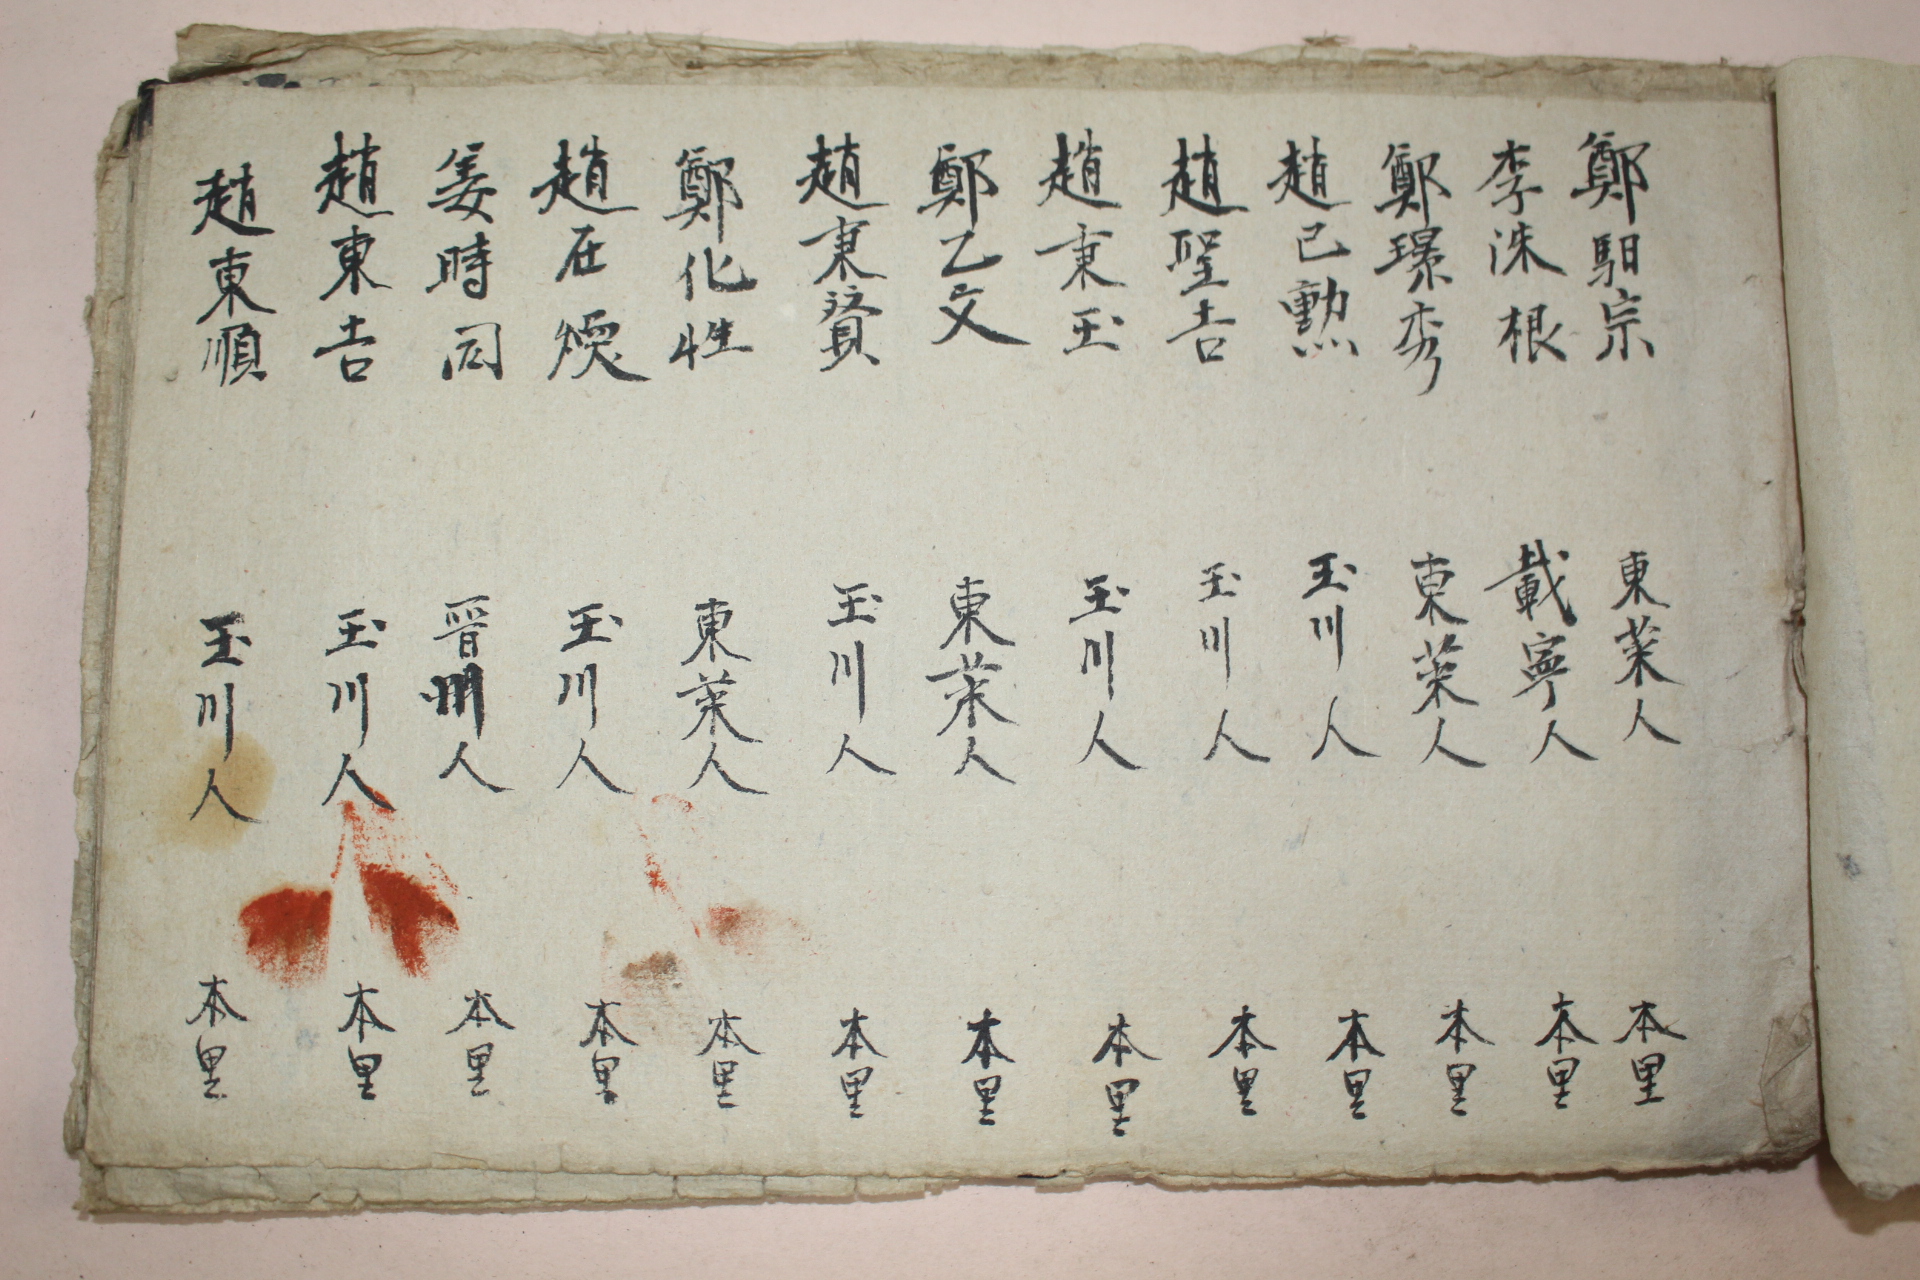 鄭馹宗 東萊人 本里
李洙根 載寧人 本里
鄭璟秀 東萊人 本里
趙己勳 玉川人 本里
趙聖吉 玉川人 本里
趙秉玉 玉川人 本里
鄭乙文 東萊人 本里
趙秉賛 玉川人 本里
鄭化性 東萊人 本里
趙在煥 玉川人 本里
姜時同 晉州人 本里
趙東吉 玉川人 本里
趙東順 玉川人 本里